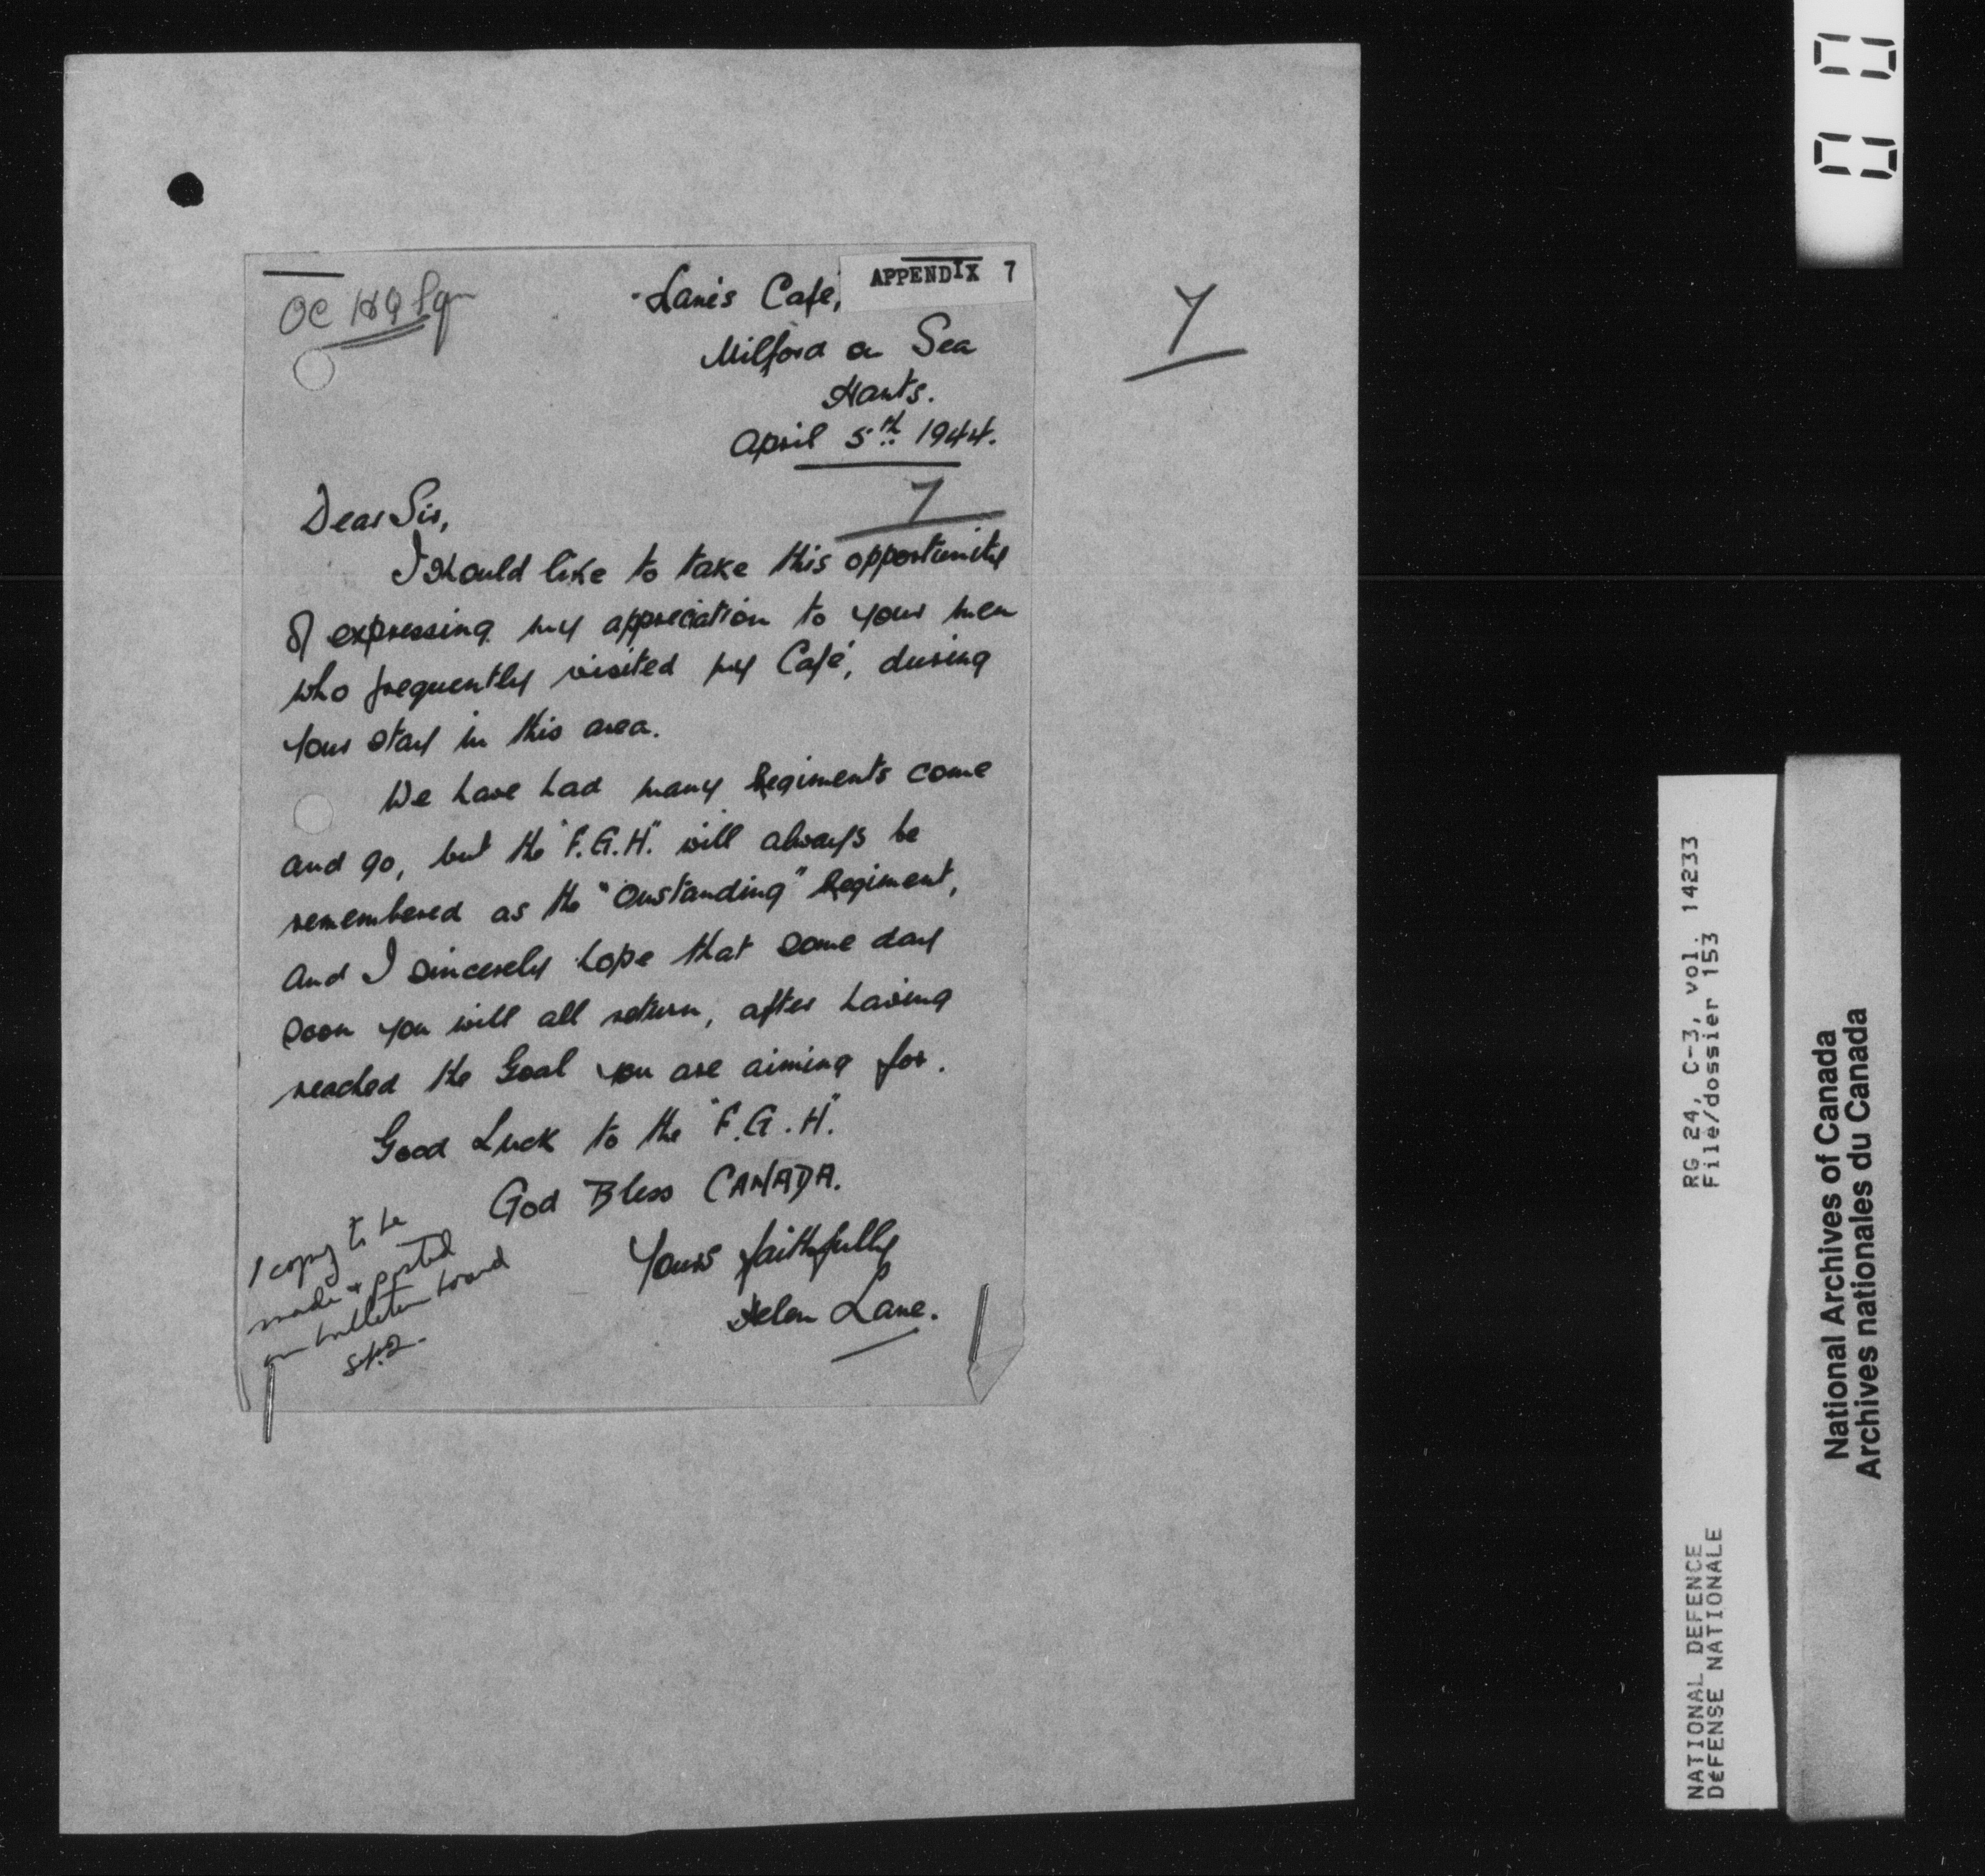 APPENDIX 7
OC HQ Sqn
Lane's Café,
Milford on Sea
Hants.
April 5th 1944.
7
7
Dear Sir,
I should like to take this opportunity
of expressing my appreciation to your men
who frequently visited my Café, during
your stay in this area.
We have had many Regiments come
and go, but the "F.G.H." will always be
remembered as the "Oustanding" Regiment,
and I sincerely hope that some day
soon you will all return, after having
reached the Goal you are aiming for.
Good Luck to the "F.G.H."
God Bless CANADA.
Yours faithfully
Helen Lane.
1 copy to be
made & posted
on bulletin board
RG 24, C-3, vol. 14233
File/dossier 153
NATIONAL DEFENCE
DÉFENSE NATIONALE
National Archives of Canada
Archives nationales du Canada